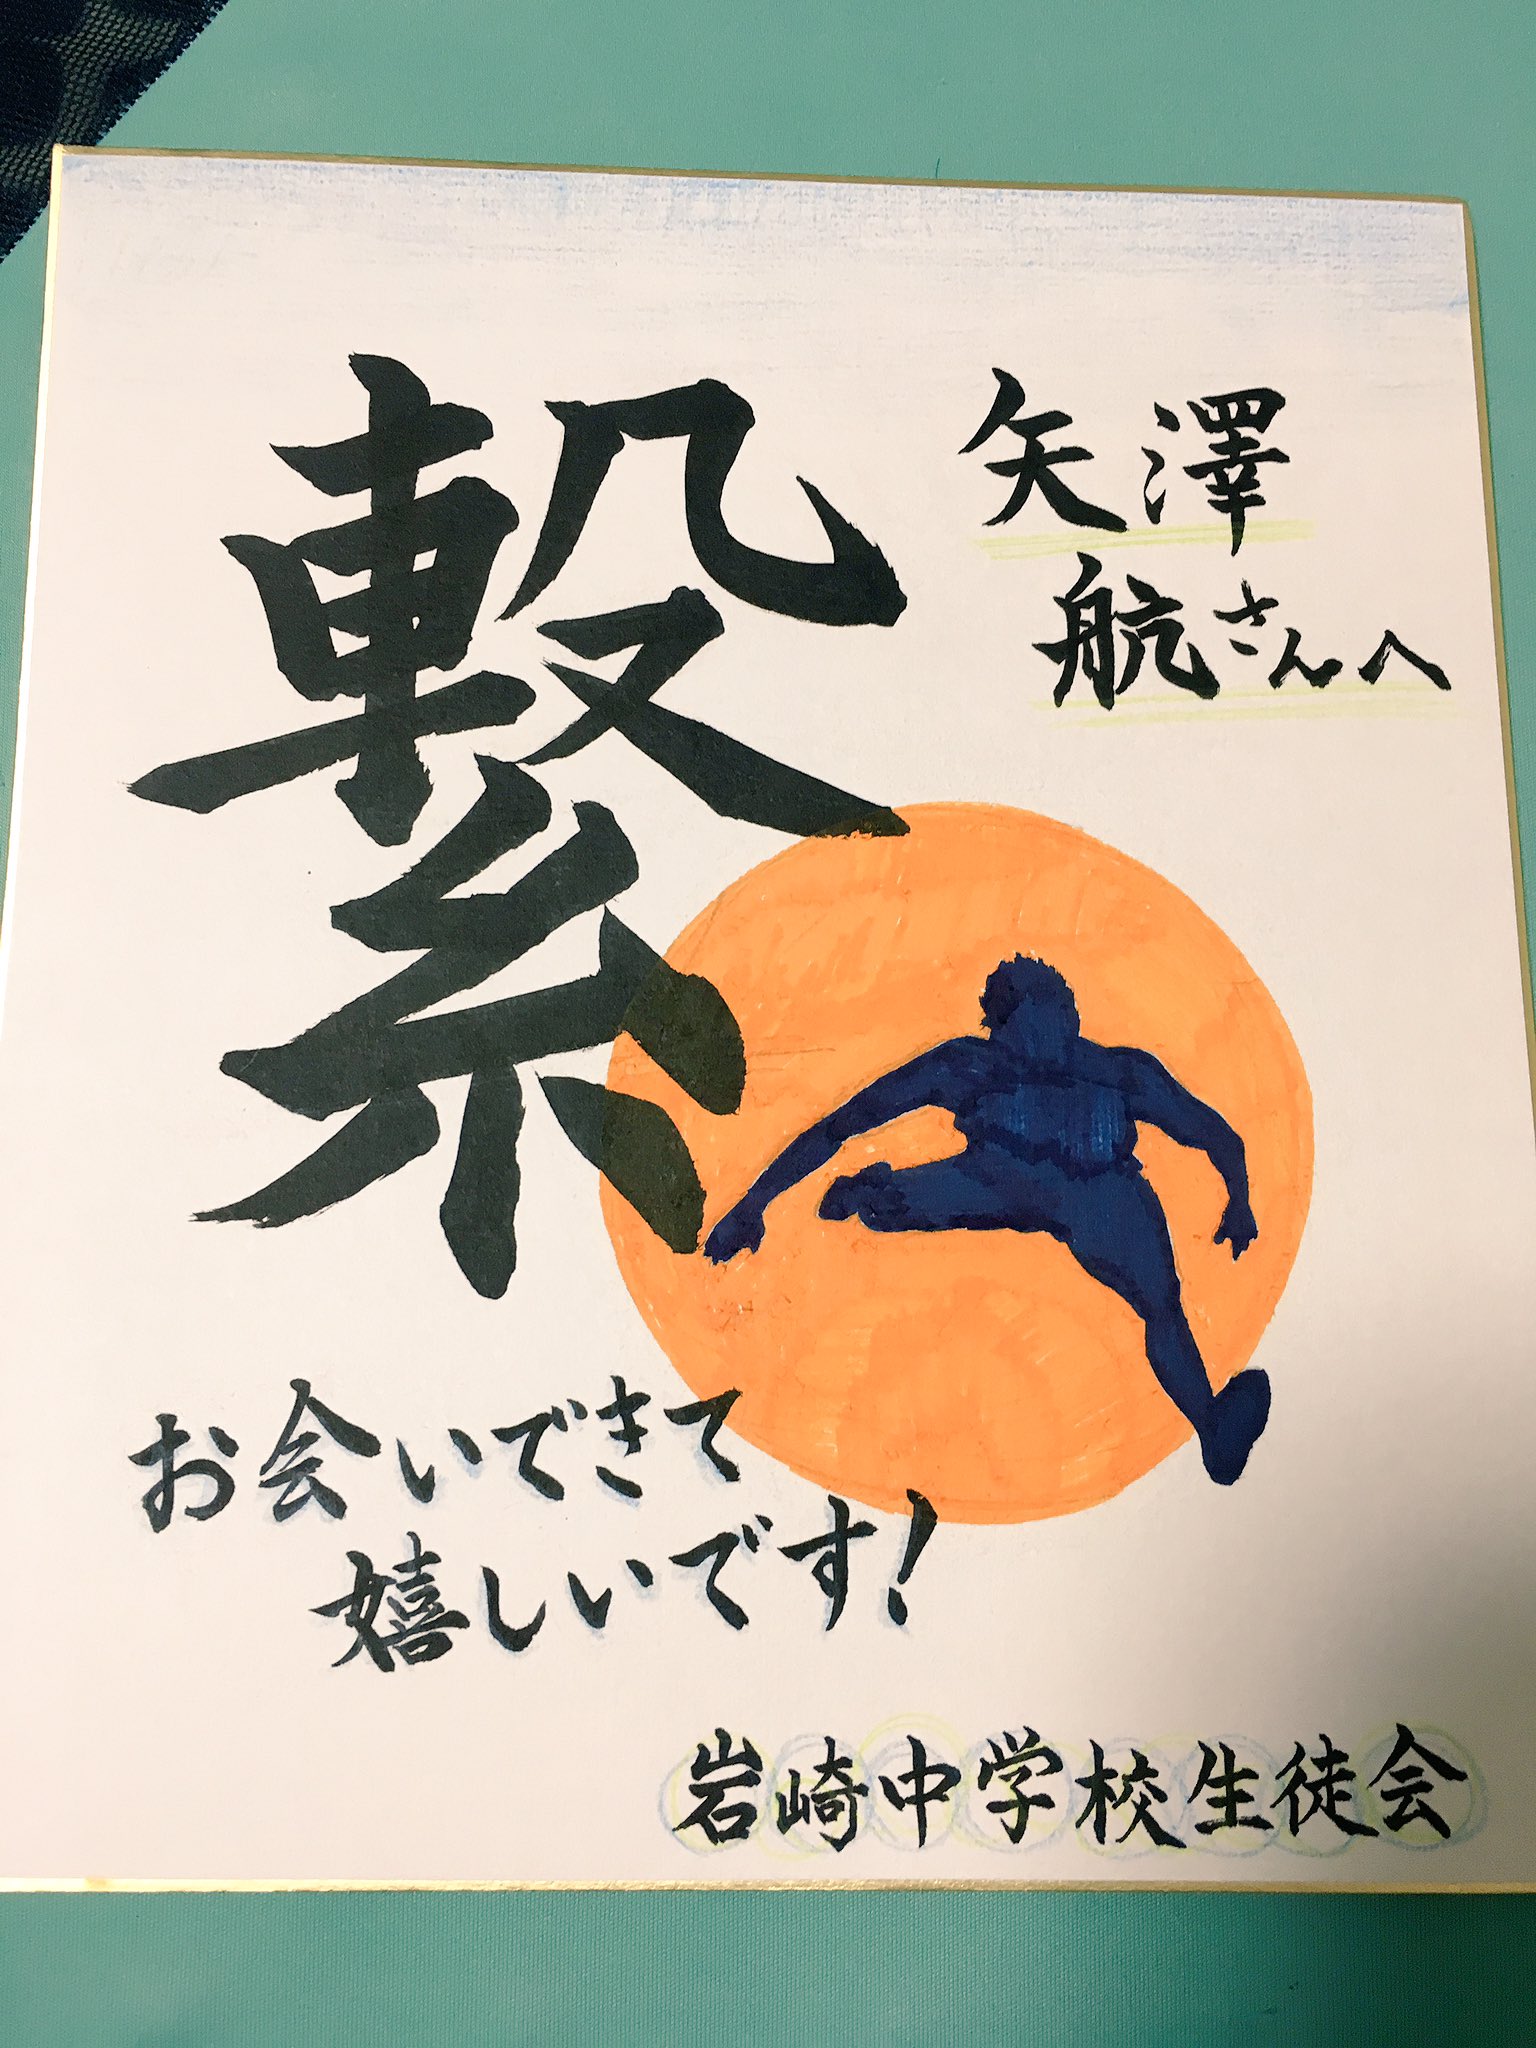 矢澤
航さんへ
繋
お会いできて
嬉しいです!
岩崎中学校生徒会